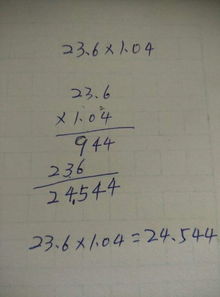 23.6×1.04
23.6
×1.04
944
236
24.544
23.6×1.04=24.544